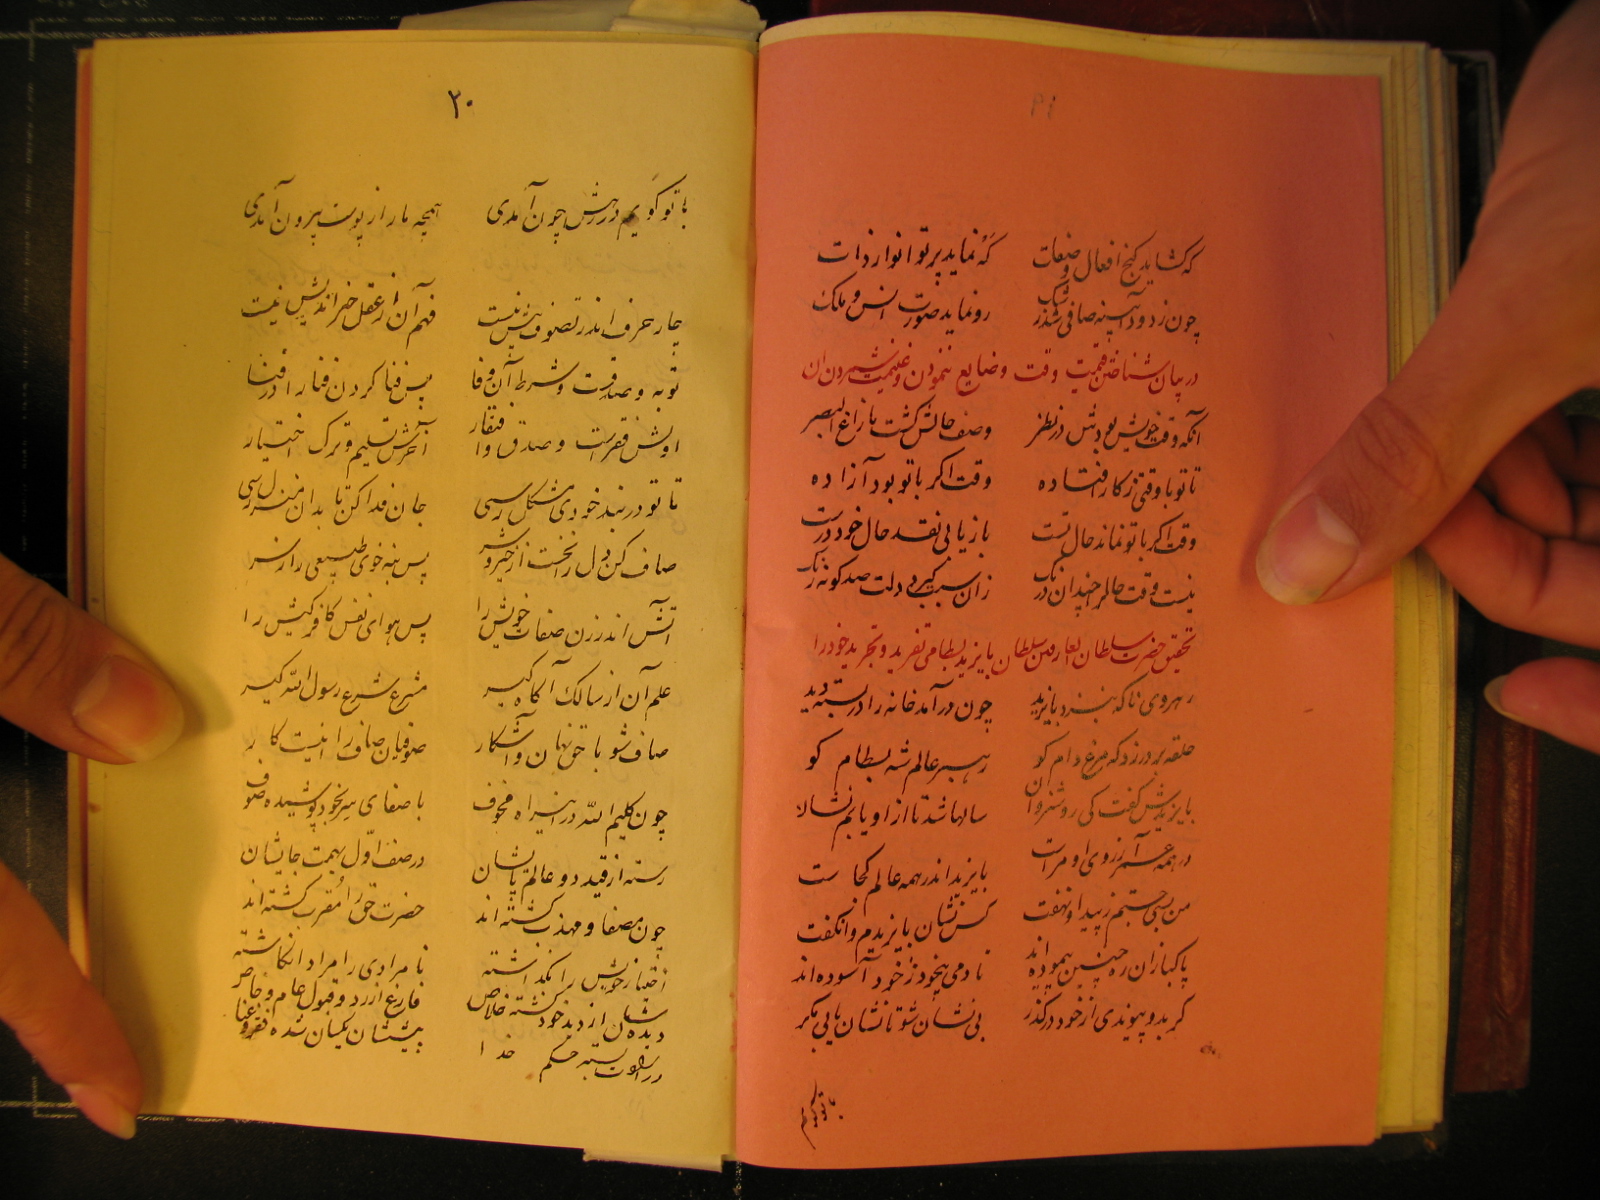 ۲۱
که گشاید گنج افعال و صفات که نماید پرتو انوار ذات
چون زدود آیینه صافی شد ز شک رو نماید صورت انس و ملک
در بیان شناختن قیمت وقت و ضایع ننمودن و غنیمت شمردن آن
آنکه وقت خویش بودش در نظر وصف حالش گشت ما زاغ البصر
تا تو با وقتی ز کار افتاده وقت اگر با تو بود آزاده
وقت اگر با تو نماند حال تست باز یابی نقد حال خود درست
نیست وقت حالرا چندان درنگ زان سبب گیرد دلت صد گونه رنگ
تحقیق حضرت سلطان العارفین سلطان بایزید بسطامی تفرید و تجرید خود را
رهروی ناگه بنزد بایزید چون درآمد خانه را در بسته دید
حلقه بر در زد که مرغ دام کو رهبر عالم شه بسطام کو
بایزیدش گفت کی روشنروان سالها شد تا ازو یابم نشان
در همه عمر آرزوی او مراست بایزید اندر همه عالم کجاست
من بسی جستم ز پیدا و نهفت کس نشان بایزیدم وانگفت
پاکبازان ره چنین پیموده‌اند تا دمی بیخود ز خود آسوده‌اند
گر بد و پیوندی از خود در گذر بی نشان شو تا نشان یابی مگر
با تو گویم
۲۰
با تو گویم در رهش چون آمدی همچو مار از پوست بیرون آمدی
چار حرف اندر تصوف بیش نیست فهم آن از عقل خیر اندیش نیست
توبه و صدقست و شرط آن وفا پس فنا کردن فنا را در فنا
اولش فقرست و صدق و افتقار آخرش تسلیم و ترک اختیار
تا تو در بند خودی مشکل رسی جان فدا کن تا بدان منزل رسی
صاف کن دل را نخست از خیر و شر پس بنه خوی طبیعی را ز سر
آتش اندر زن صفات خویش را پس هوای نفس کافر کیش را
علم آن از سالک آگاه گیر مشرع شرع رسول الله گیر
صاف شو با حق نهان و آشکار صوفیان صاف را اینست کار
چون کلیم الله در این راه مخوف با صفای سر بخود پوشیده صوف
رسته از قید دو عالم پایشان در صف اول بهمت جایشان
چون مصفا و مهذب گشته‌اند حضرت حق را مقرب گشته‌اند
اختیار خویش را بگذاشته نامرادی را مراد انگاشته
دیده‌شان از دید خود گشته خلاص فارغ از رد و قبول عام و خاص
بسته حکم خدا پیششان یکسان شده فقر و غنا